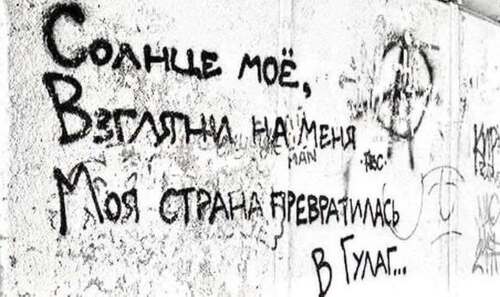 Солнце моё,
Взгляни на меня
MAN
Моя страна превратилась
в Гулаг...